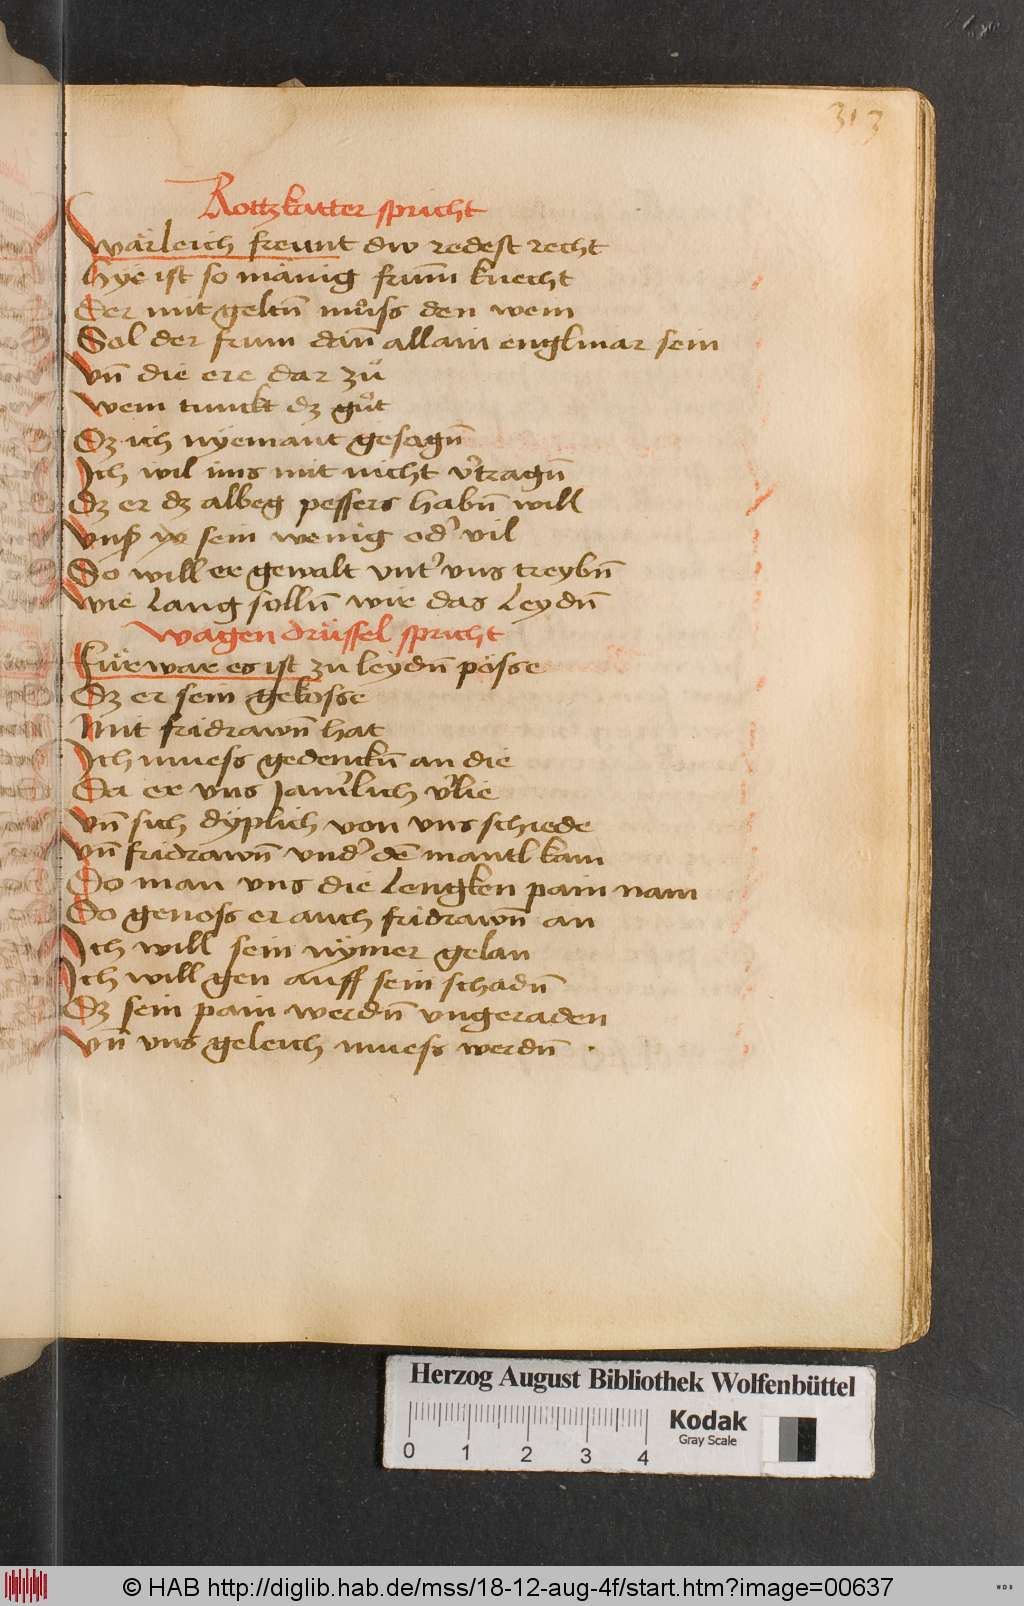 313
Rottzkatter spricht
Wärleich freunt dw redest recht
hye ist so mänig frum̄ knecht
Der mit geltn̄ müss den wein
Sol der frum dan̄ allain englmar sein
Vn̄ die ere dar zů
Wem tunckt dz gůt
Dz ich nyemant gesagn̄
Ich wil ims mit nicht v̓tragn̄
Dz er dz albeg pessers habn̄ will
Vnser yo sein wenig od̓ vil
So will er gewalt vnt̓ vns treybn̄
Wie lang solln̄ wir das leydn̄
Wagen drüssel spricht
Fürwar es ist zu leydn̄ pösse
Dz er sein gekösse
Mit fridrawn̄ hat
Ich muess gedenckn̄ an die
Da er vns Jam̓lich v̓lie
Vn̄ sich dyplich von vns schiede
Vn̄ fridrawn̄ vnd̓ dē mantl kam
Do man vns die lengken pain nam
Do genoss er auch fridrawn̄ an
Ich will sein nymer gelan
Ich will gen auff sein schadn̄
Dz sein pain werdn̄ vngeraden
Vn̄ vns geleich muess werdn̄ .
Herzog August Bibliothek Wolfenbüttel
Kodak
Gray Scale
0 1 2 3 4
© HAB http://diglib.hab.de/mss/18-12-aug-4f/start.htm?image=00637